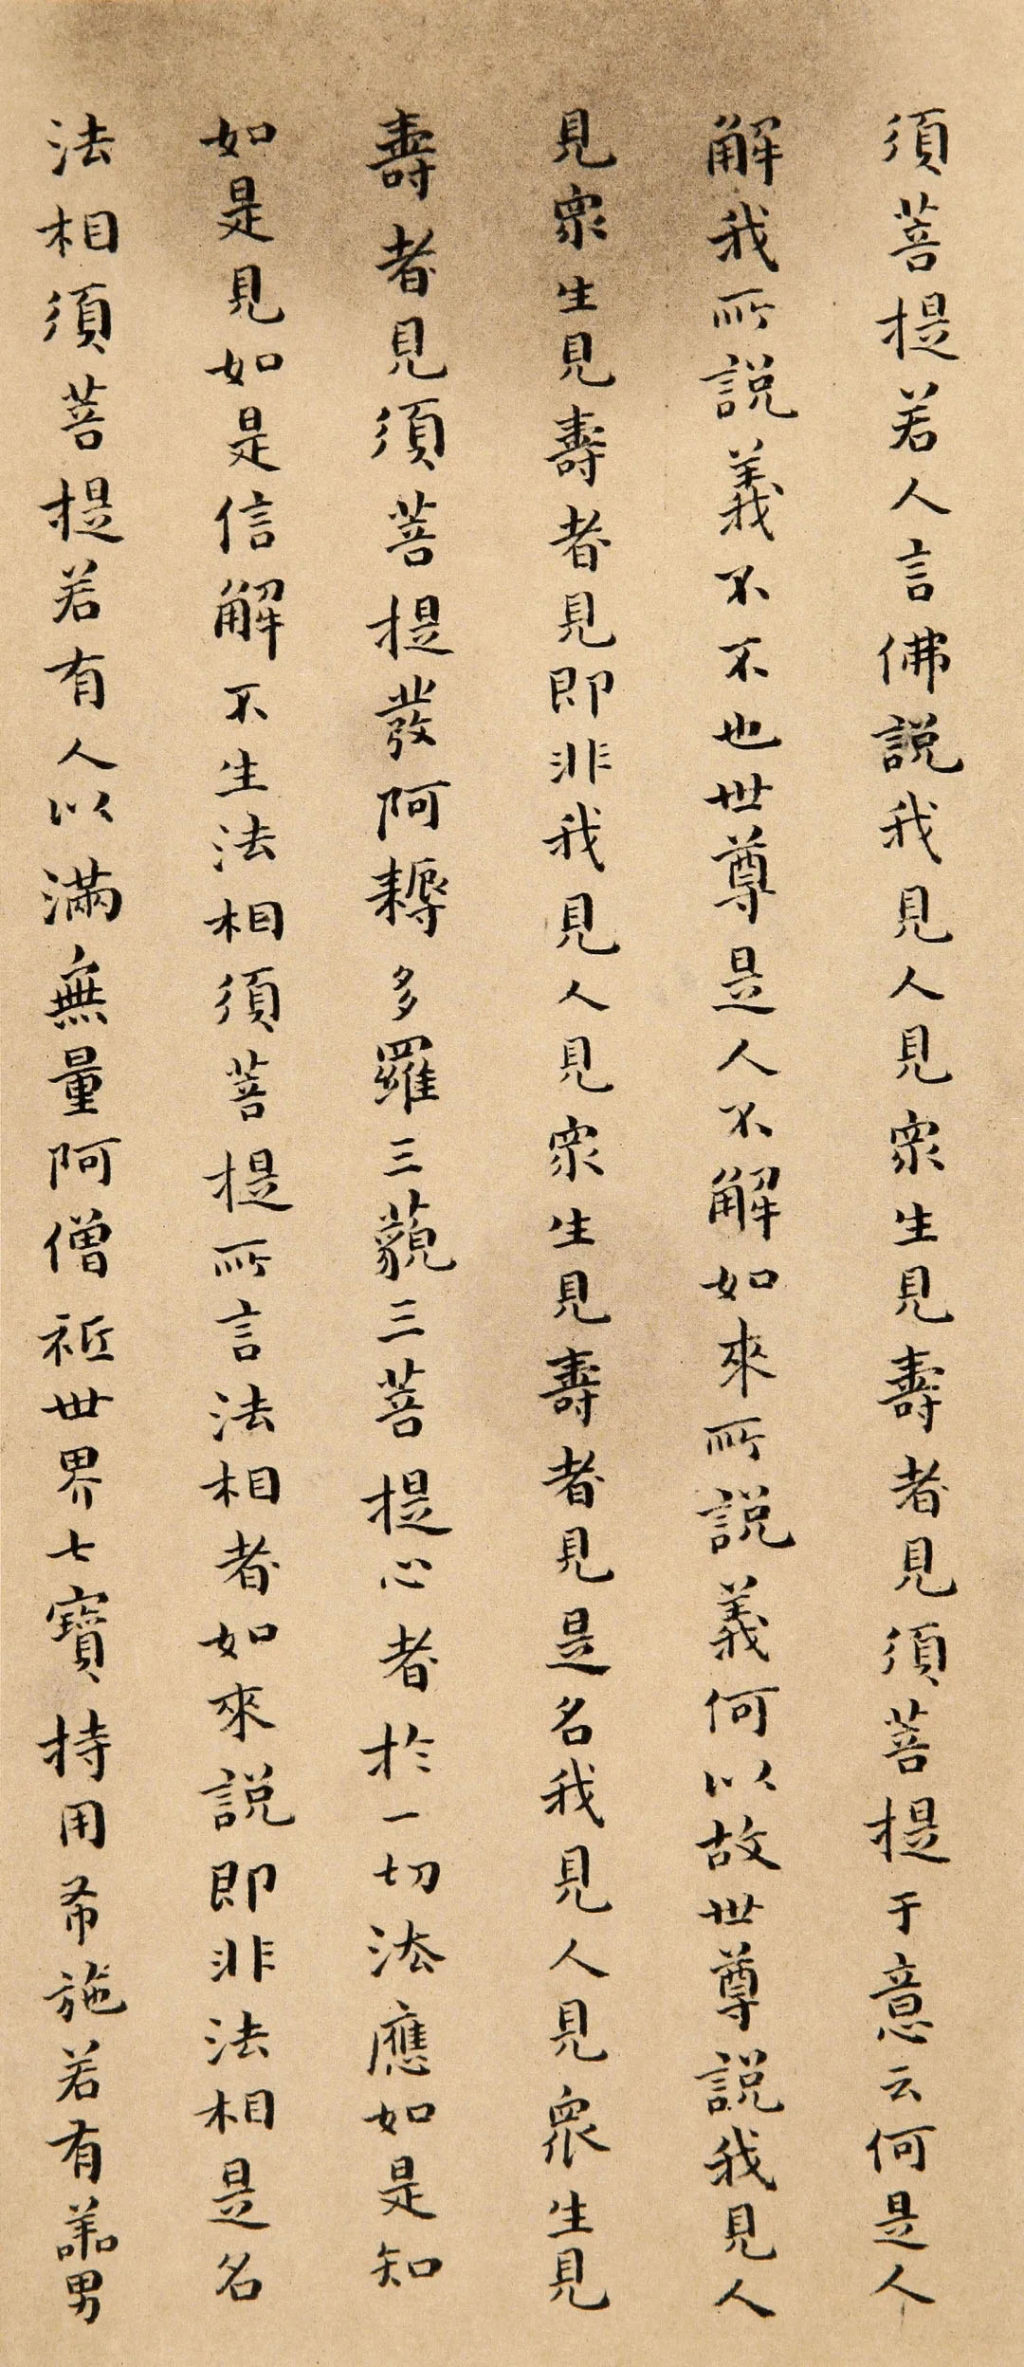 須菩提若人言佛説我見人見眾生見壽者見須菩提于意云何是人
解我所説義不不也世尊是人不解如來所説義何以故世尊説我見人
見眾生見壽者見即非我見人見眾生見壽者見是名我見人見眾生見
壽者見須菩提發阿耨多羅三藐三菩提心者於一切法應如是知
如是見如是信解不生法相須菩提所言法相者如來説即非法相是名
法相須菩提若有人以滿無量阿僧祇世界七寶持用布施若有善男